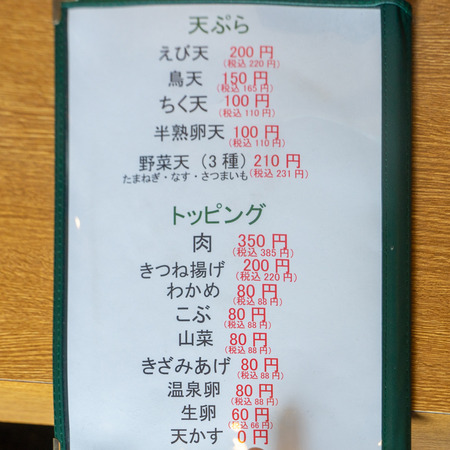 天ぷら
えび天 200円
(税込 220円)
鳥天 150円
(税込 165円)
ちく天 100円
(税込 110円)
半熟卵天 100円
(税込 110円)
野菜天 (3種) 210円
たまねぎ・なす・さつまいも (税込 231円)
トッピング
肉 350円
(税込 385円)
きつね揚げ 200円
(税込 220円)
わかめ 80円
(税込 88円)
こぶ 80円
(税込 88円)
山菜 80円
(税込 88円)
きざみあげ 80円
(税込 88円)
温泉卵 80円
(税込 88円)
生卵 60円
(税込 66円)
天かす 0円